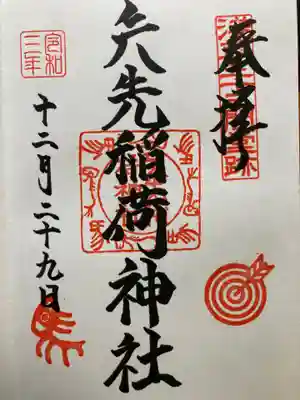 奉拝
矢先稲荷神社
令和
三年
十二月二十九日